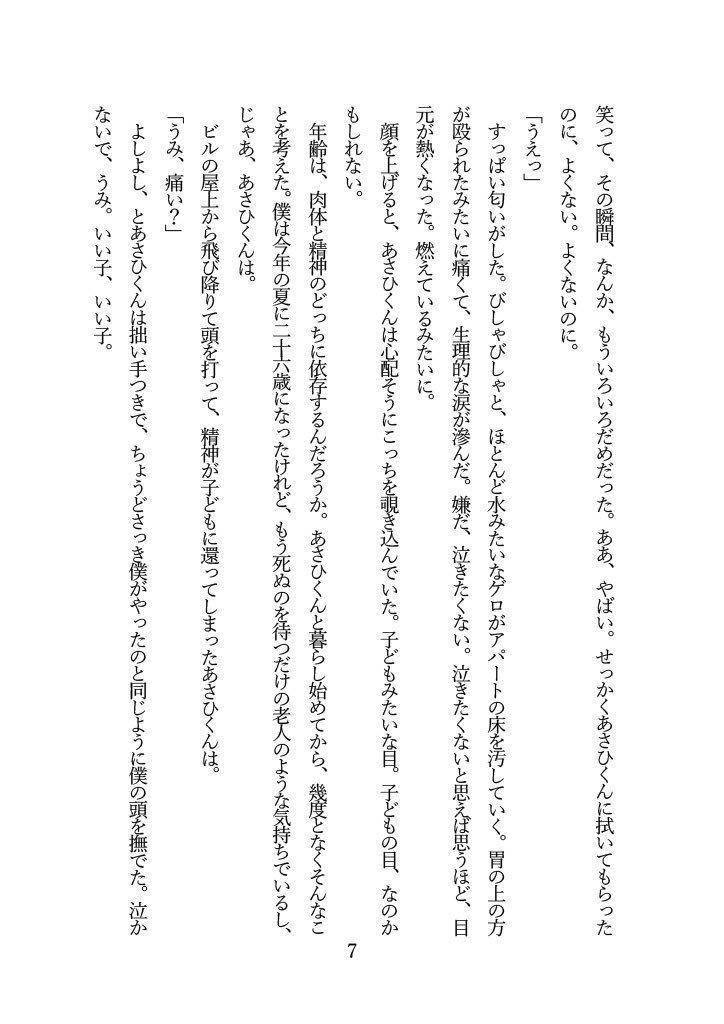 笑って、その瞬間、なんか、もういろいろだめだった。ああ、やばい。せっかくあさひくんに拭いてもらった
のに、よくない。よくないのに。
「うえっ」
　すっぱい匂いがした。びしゃびしゃと、ほとんど水みたいなゲロがアパートの床を汚していく。胃の上の方
が殴られたみたいに痛くて、生理的な涙が滲んだ。嫌だ、泣きたくない。泣きたくないと思えば思うほど、目
元が熱くなった。燃えているみたいに。
　顔を上げると、あさひくんは心配そうにこっちを覗き込んでいた。子どもみたいな目。子どもの目、なのか
もしれない。
　年齢は、肉体と精神のどっちに依存するんだろうか。あさひくんと暮らし始めてから、幾度となくそんなこ
とを考えた。僕は今年の夏に二十六歳になったけれど、もう死ぬのを待つだけの老人のような気持ちでいるし、
じゃあ、あさひくんは。
　ビルの屋上から飛び降りて頭を打って、精神が子どもに還ってしまったあさひくんは。
「うみ、痛い？」
　よしよし、とあさひくんは拙い手つきで、ちょうどさっき僕がやったのと同じように僕の頭を撫でた。泣か
ないで、うみ。いい子、いい子。
7